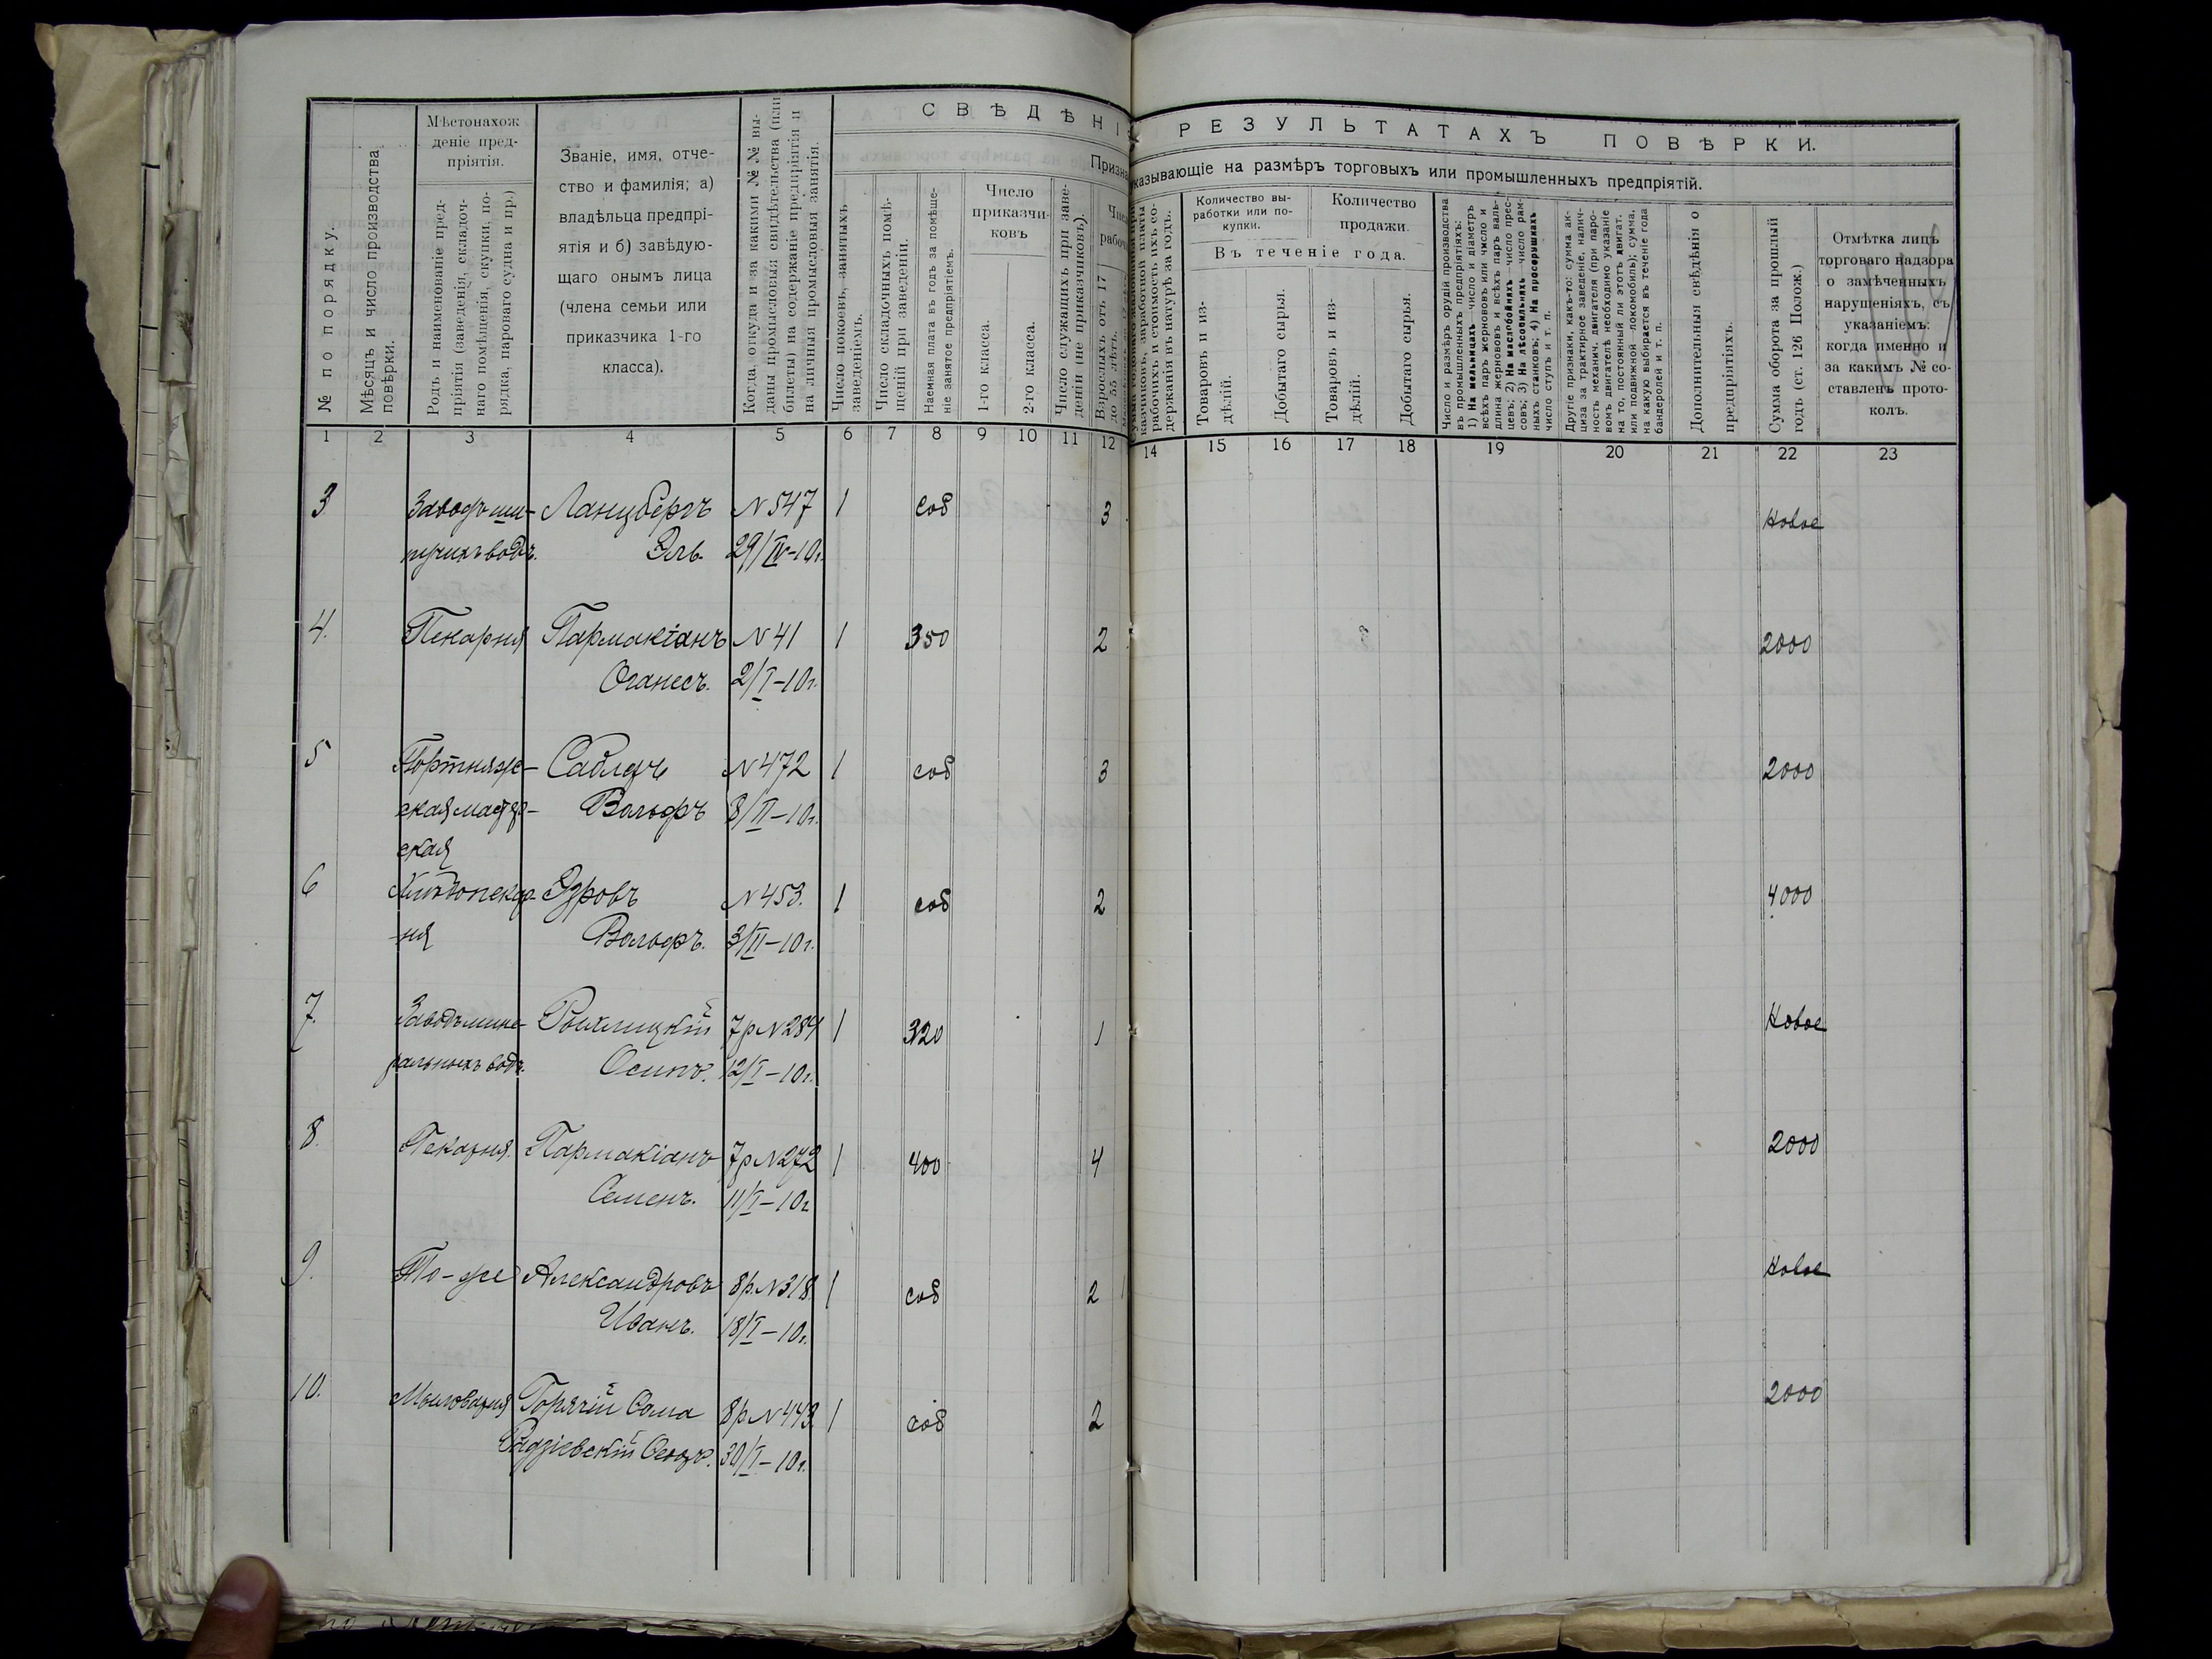 СВѢДѢНІ РЕЗУЛЬТАТАХЪ ПОВѢРКИ.
Призна указывающіе на размѣръ торговыхъ или промышленныхъ предпріятій.
№ по порядку.
Мѣсяцъ и число производства
повѣрки.
Мѣстонахож
деніе пред-
пріятія.
Родъ и наименованіе пред-
пріятія (заведенія, складоч-
наго помѣщенія, скупки, по-
рядка, парового судна и пр.)
Званіе, имя, отче-
ство и фамилія; а)
владѣльца предпрі-
ятія и б) завѣдую-
щаго онымъ лица
(члена семьи или
приказчика 1-го
класса).
Когда, откуда и за какими №№ вы-
даны промысловыя свидѣтельства (или
билеты) на содержаніе предпріятія и
на личныя промысловыя занятія.
Число покоевъ, занятыхъ
заведеніемъ.
Число складочныхъ помѣ-
щеній при заведеніи.
Наемная плата въ годъ за помѣще-
ніе занятое предпріятіемъ.
Число
приказчи-
ковъ
1-го класса.
2-го класса.
Число служащихъ при заве-
деніи (не приказчиковъ).
Взрослыхъ отъ 17
до 55 лѣтъ.
казчиковъ, заработной платы
рабочихъ и стоимость ихъ со-
держанія въ натурѣ за годъ.
Количество вы-
работки или по-
купки.
Количество
продажи.
Въ теченіе года.
Товаровъ и из-
дѣлій.
Добытаго сырья.
Товаровъ и из-
дѣлій.
Добытаго сырья.
Число и размѣръ орудій производства
въ промышленныхъ предпріятіяхъ:
1) На мельницахъ число и діаметръ
всѣхъ паръ жерновovъ или число и
длина жернововъ и всѣхъ паръ валь-
цевъ; 2) На маслобойняхъ число прес-
совъ; 3) На лѣсопильняхъ число рам-
ныхъ станковъ; 4) На просорушкахъ
число ступъ и т. п.
Другіе признаки, какъ-то: сумма ак-
циза за трактирное заведеніе, налич-
ность механич. двигателя (при паро-
вомъ двигателѣ необходимо указаніе
на то, постоянный ли этотъ двигат.
или подвижной -локомобиль); сумма,
на какую выбирается въ теченіе года
бандеролей и т. п.
Дополнительныя свѣдѣнія о
предпріятіяхъ.
Сумма оборота за прошлый
годъ (ст. 126 Полож.)
Отмѣтка лицъ
торговаго надзора
о замѣченныхъ
нарушеніяхъ, съ
указаніемъ:
когда именно и
за какимъ № со-
ставленъ прото-
колъ.
1 2 3 4 5 6 7 8 9 10 11 12 14 15 16 17 18 19 20 21 22 23
3 Заводъ ши- Ланцбергъ N 547 1 соб 3 Новое
пучихъ водъ. Эль 29/IV-10г.
4. Пекарня Пармакіанъ N 41 1 350 2 2000
Оганесъ. 2/I-10г.
5 Портняж- Саблеръ N 472 1 соб 3 2000
ская мастер- Вольфъ 8/II-10г.
ская
6 Хлѣбопекар- N 453. 1 соб 2 4000
ня Вольфъ. 3/II-10г.
7. Заводъ мине- Рыхлицкій 7р N 284 1 320 1 Новое
ральныхъ водъ. Осипъ. 12/I-10г.
8. Пекарня. Пармакіанъ 7р N 272 1 400 4 2000
Семенъ. 11/I-10г.
9. То-же Александровъ 8р. N 318. 1 соб 2 Новое
Иванъ. 18/I-10г.
10. Мыловарня Горячій 8р N 443. 1 соб 2 2000
30/I-10г.